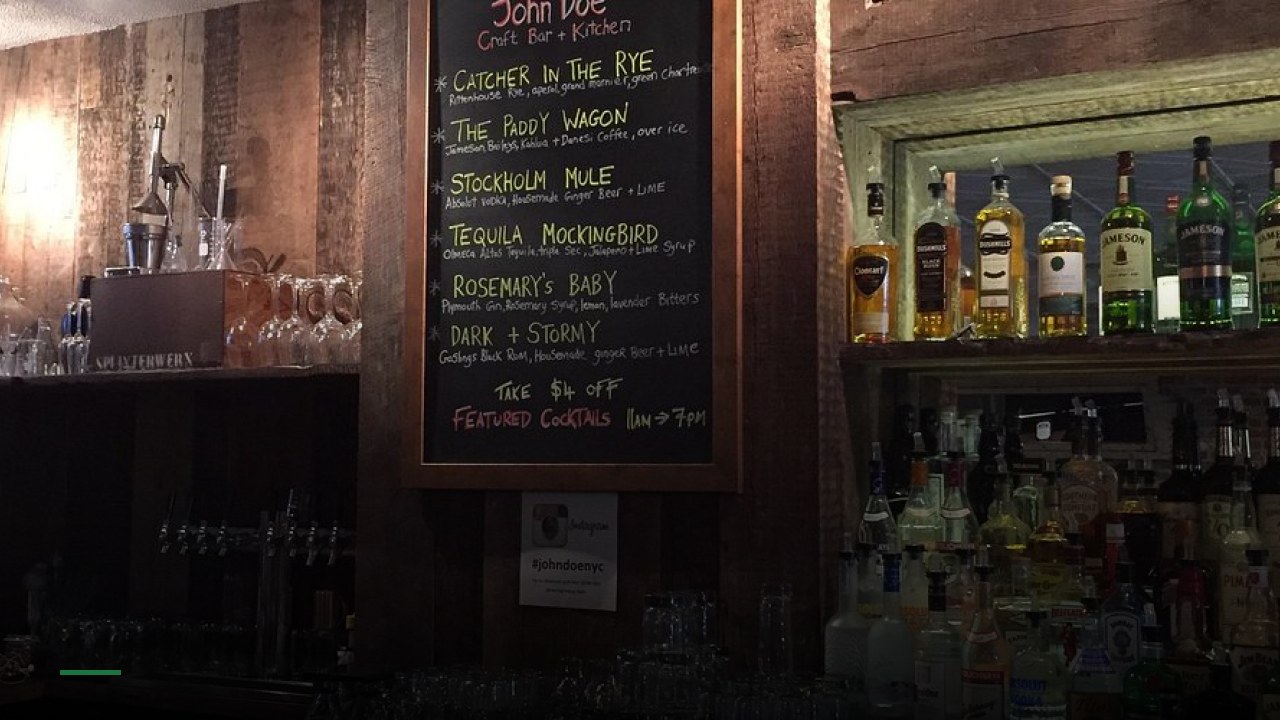 John Doe
Craft Bar + Kitchen
* CATCHER IN THE RYE
Rittenhouse Rye, aperol, grand marnier, green Chartre
* THE PADDY WAGON
Jameson, Baileys, Kahlua + Danesi Coffee, over ice
* STOCKHOLM MULE
Absolut vodka, Housemade Ginger Beer + LIME
* TEQUILA MOCKINGBIRD
Olmeca Altos Tequila, triple Sec, Jalapeno + Lime Syrup
* ROSEMARY'S BABY
Plymouth Gin, Rosemary Syrup, lemon, lavender Bitters
* DARK + STORMY
Goslings Black Rum, Housemade ginger Beer + LIME
TAKE $4 OFF
FEATURED COCKTAILS 11AM → 7PM
SPLINTERWERX
Instagram
#johndoenyc
Clontarf
BUSHMILLS
BLACK BUSH
BUSHMILLS
JAMESON
JAMESON
ABSOLUT